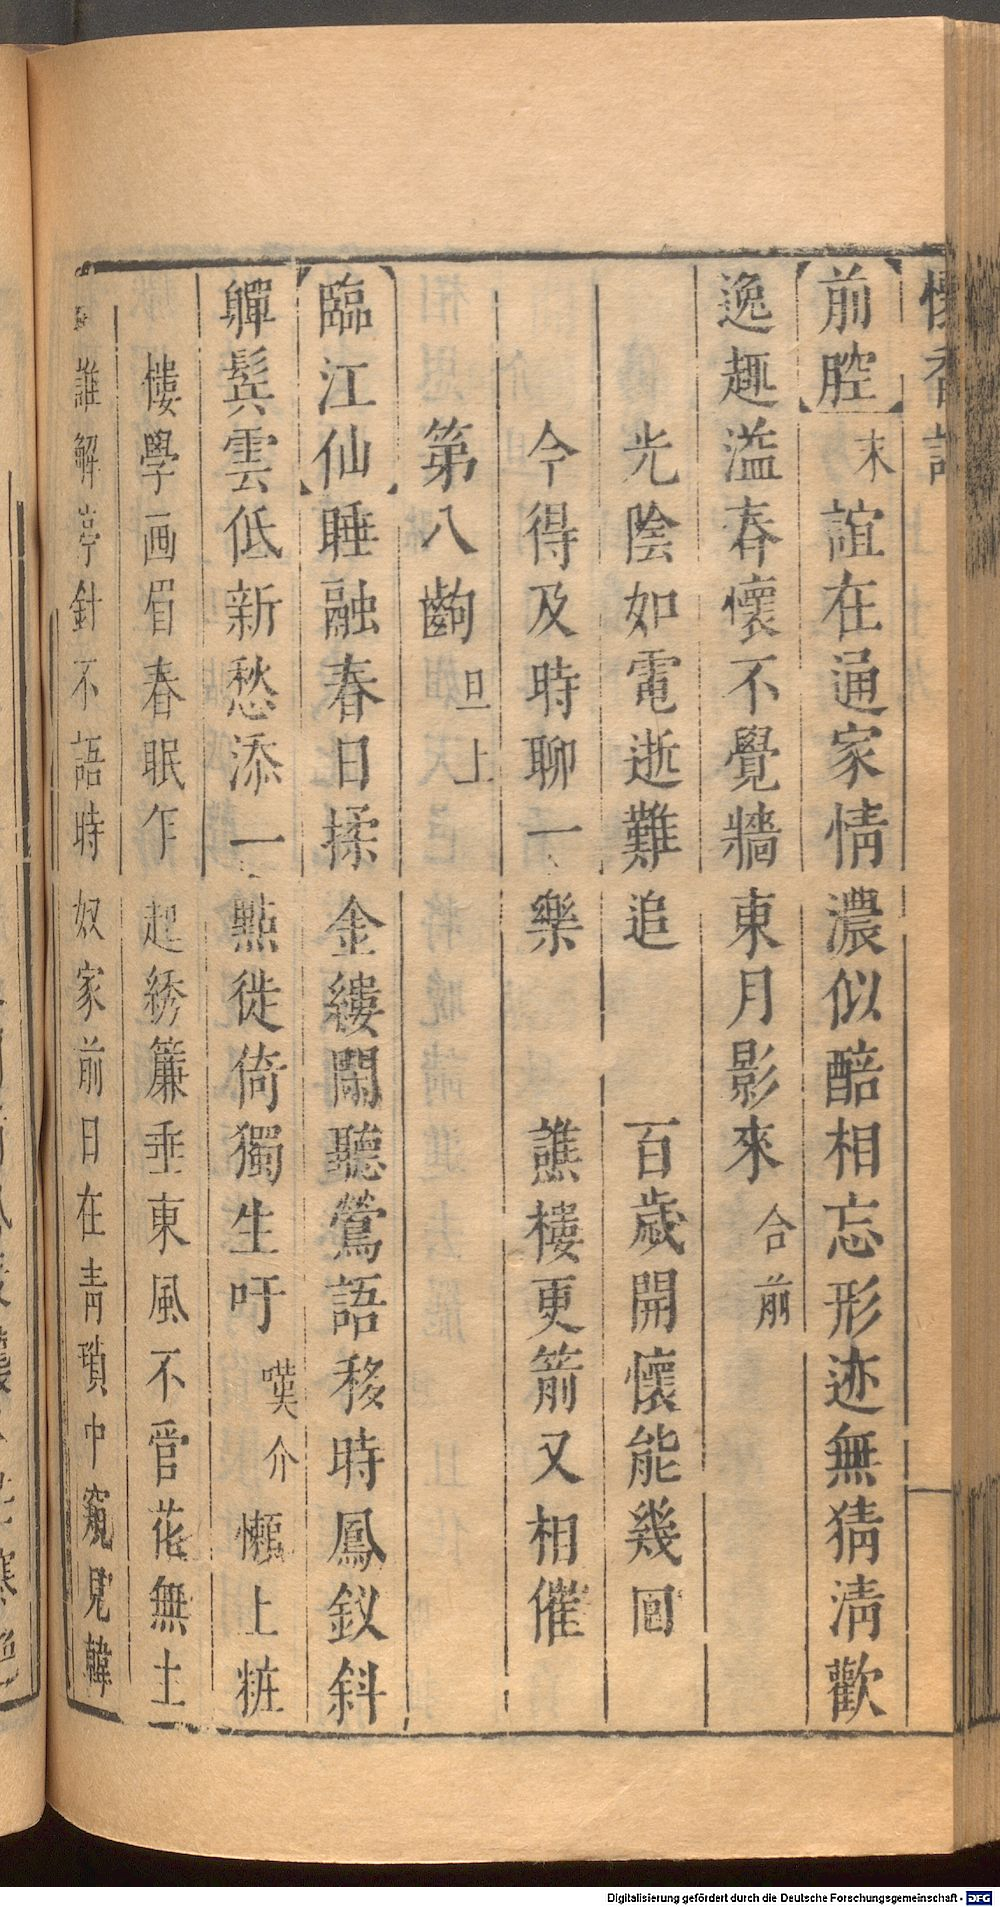 懷香記
【前腔】末誼在通家情濃似醅相忘形迹無猜淸歡
逸趣溢春懷不覺牆東月影來合前
光陰如電逝難追 百歲開懷能幾囘
今得及時聊一樂 譙樓更箭又相催
第八齣旦上
【臨江仙】睡融春日揉金縷閙聽鶯語移時鳳釵斜
嚲髩雲低新愁添一點徙倚獨生吁嘆介懶上粧
樓學画眉春眠乍起綉簾垂東風不管花無主
誰解亭針不語時奴家前日在靑瑣中窺見韓
Digitalisierung gefördert durch die Deutsche Forschungsgemeinschaft - DFG